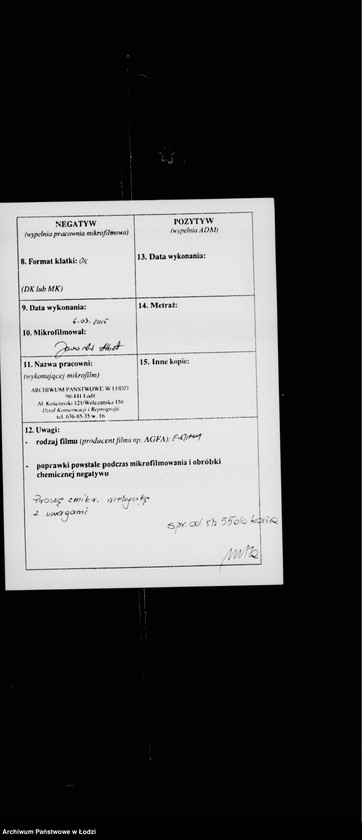 NEGATYW
(wypełnia pracownia mikrofilmowa)
8. Format klatki: DK
(DK lub MK)
9. Data wykonania:
6.03.2015
10. Mikrofilmował:
11. Nazwa pracowni:
(wykonującej mikrofilm)
ARCHIWUM PAŃSTWOWE W ŁODZI
Al. Kościuszki 121/Wólczańska 150
Dział Konserwacji i Reprografii
tel. 636-85-35 w. 16
POZYTYW
(wypełnia ADM)
13. Data wykonania:
14. Metraż:
15. Inne kopie:
12. Uwagi:
- rodzaj filmu (producent filmu np. AGFA):
- poprawki powstałe podczas mikrofilmowania i obróbki
chemicznej negatywu
Proszę
z uwagami
spr. od
Archiwum Państwowe w Łodzi